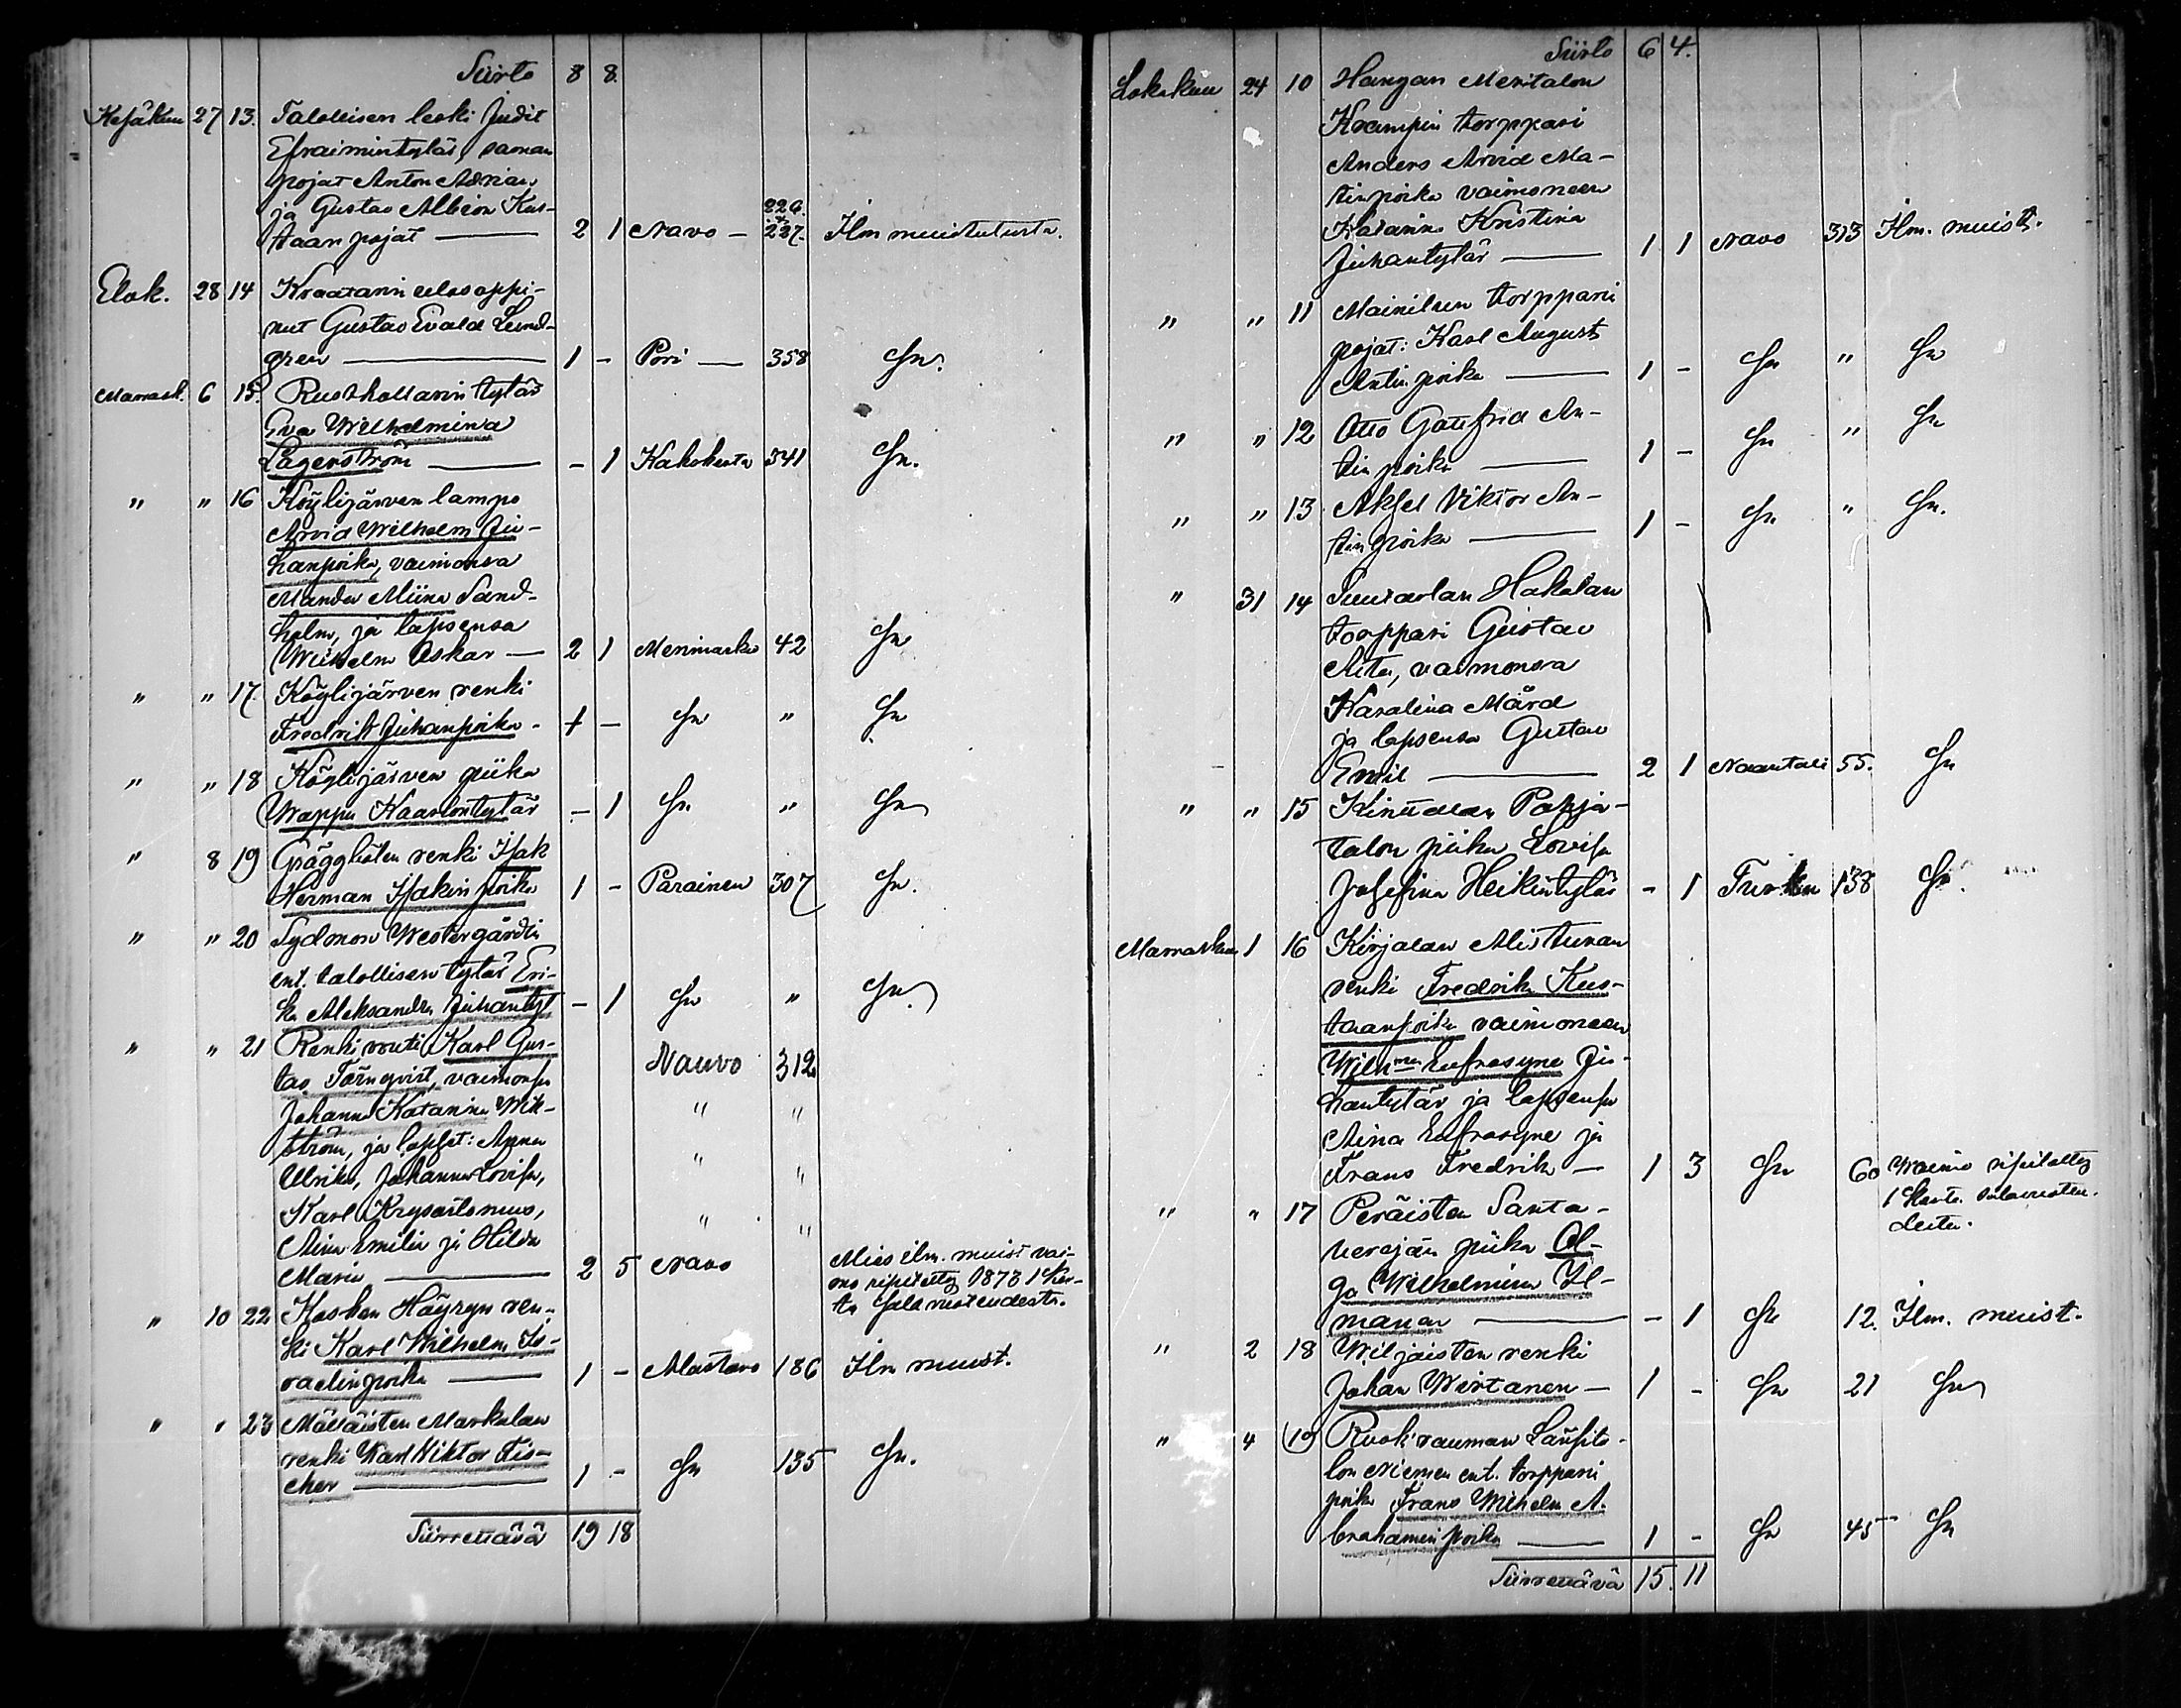 Siirto 8 8
Kesäkuu 27 13. Talollisen leski Judit
Efraimintytär, saman
pojat Anton Adrian
ja Gustav Albion Kus- 226.
taan pojat — 2 1 Navo — 227. Ilm muistutusta.
Elok. 28 14 Kraatarin ulosoppi-
nut Gustav Evald Lund-
gren — 1 - Pori — 358 Sn.
Marrask. 6 15. Rusthollarin tytär
Eva Wilhelmina
Lagerström — - 1 Kakskerta 341 Sn.
" " 16 Köylijärven lampo
Arvid Wilhelm Ju-
hanpoika, vaimonsa
Manda Miina Sand-
holm, ja lapsensa
Wilhelm Oskar — 2 1 Merimasku 42 Sn
" " 17. Köylijärven renki
Fredrik Juhanpoika - 1 - Sn " Sn
" " 18 Köylijärven piika
Wappu Kaarlontytär - 1 Sn " Sn
" 8 19 renki Isak
Herman Isakin poika 1 - Parainen 307 Sn.
" " 20 Sydmon Westergårdin
ent. talollisen tytär Eri-
ka Aleksandra Juhantyt - 1 Sn " Sn
" " 21 Renkivouti Karl Gus- Nauvo 312
tav Törnqvist, vaimonsa
Johanna Katarina Wik- " "
ström, ja lapset: Anna
Ulrika, Johanna Lovisa, " "
Karl Krysostomus,
Aina Emilia ja Hilda " "
Maria — 2 5 Navo Mies ilm. muist vai-
mo ripitetty 1873 1 ker-
ta salavuoteudesta.
" 10 22 Kosken Höyryn ren-
ki Karl Wilhelm Is-
raelinpoika — 1 - Mastavo 186 Ilm muist.
" " 23 Mälläisten Markulan
renki Karl Viktor Fis-
cher — 1 - Sn 135 Sn.
Siirrettävä 19 18
Siirto 6 4.
Lokakuu 24 10 Hangan Meritalon
Krampin torppari
Anders Arvid Ma-
tinpoika vaimoneen
Katarina Kristina
Juhantytär — 1 1 Navo 313 Ilm. muist.
" " 11 Mainitun torpparin
pojat: Karl August
Antinpoika — 1 - Sn " Sn
" " 12 Otto Gottfrid An-
tinpoika — 1 - Sn " Sn
" " 13 Aksel Viktor An-
tinpoika — 1 - Sn " Sn.
" 31 14 Hakalan
torppari Gustav
vaimonsa
Karolina Mård
ja lapsensa Gustav
Emil — 2 1 Naantali 55. Sn
" " 15 Pohja-
talon piika Lovisa
Josefina Heikintytär - 1 Turku 138 Sn.
Marraskuu 1 16 Kirjalan Alistunan
renki Fredrik Kus-
taanpoika vaimoneen
Wilhma Eufrosyne Ju-
hantytär ja lapsensa
Aina Eufrosyne ja
Frans Fredrik — 1 3 Sn 60 Waimo ripitetty
1 kerta salavuoteu-
desta.
" " 17 Peräisten Santa-
piika Ol-
ga Wilhelmina Il-
manen — - 1 Sn 12. Ilm. muist.
" 2 18 Wiljaisten renki
Johan Wirtanen — 1 - Sn 21 Sn
" 4 19 Ruokorauman
Niemen ent. torpparin
poika Frans Wilhelm A-
brahaminpoika — 1 - Sn 45 Sn
Siirrettävä 15. 11